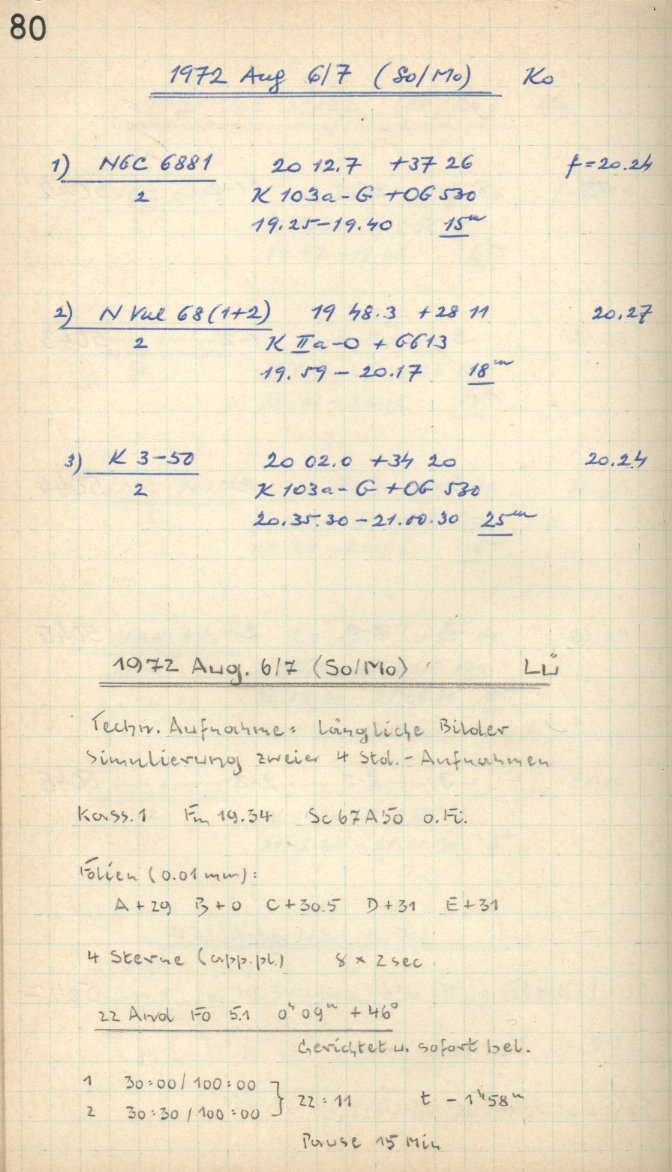 80
1972 Aug 6/7 (So/Mo) Ko
1) NGC 6881 20 12.7 +37 26 f=20.24
2 K 103a-G +OG 530
19.25-19.40 15m
2) N Vul 68(1+2) 19 48.3 +28 11 20.27
2 K IIa-O + GG13
19.59 - 20.17 18m
3) K 3-50 20 02.0 +34 20 20.24
2 K 103a-G +OG 530
20.35.30-21.00.30 25m
1972 Aug. 6/7 (So/Mo) Lü
Techn. Aufnahme: Längliche Bilder
Simulierung zweier 4 Std.-Aufnahmen
Kass. 1 Fm 19.34 Sc67A50 o.Fi.
Folien (0.01 mm):
A+29 B+0 C+30.5 D+31 E+31
4 Sterne (app.pl.) 8 × 2 sec
22 And F0 5.1 0h 09m +46°
Gerichtet u. sofort bel.
1 30:00/100:00
2 30:30/100:00 } 22:11 t -1h58m
Pause 15 Min